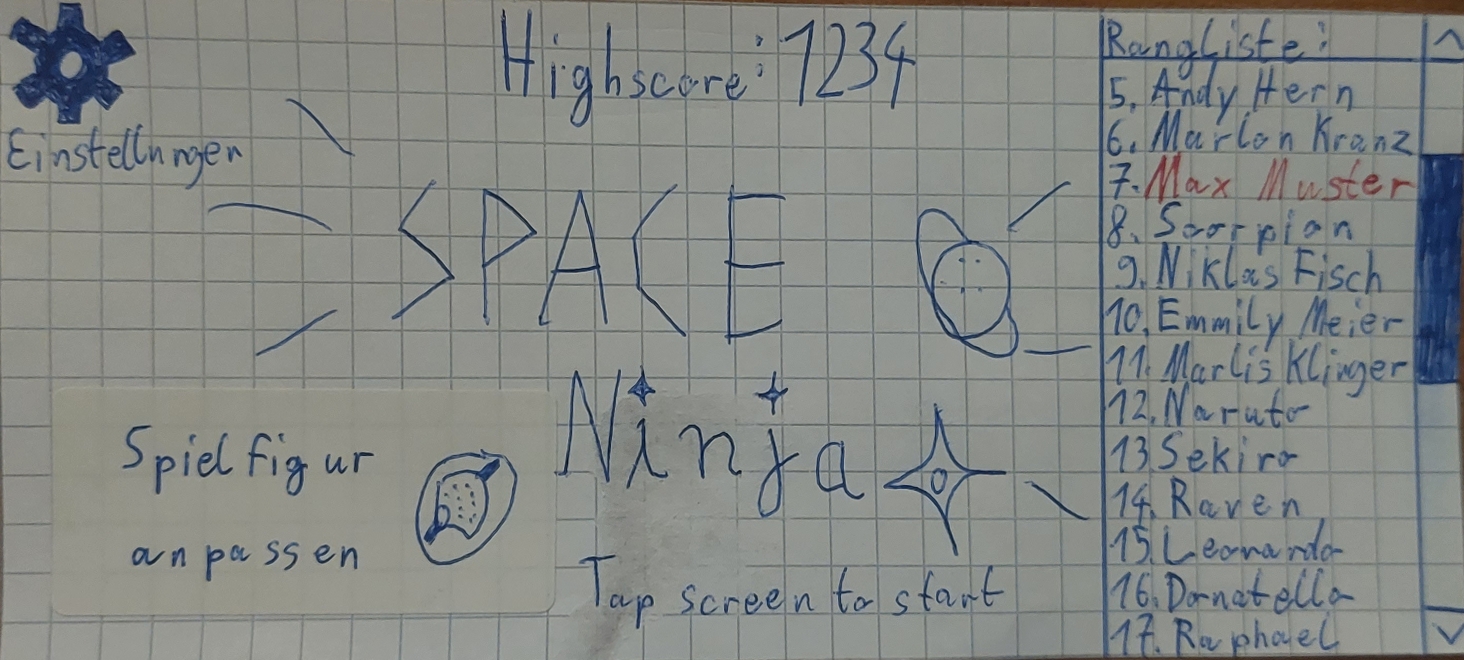 Einstellungen
Highscore: 1234
SPACE
Ninja
Tap screen to start
Spielfigur
anpassen
Rangliste:
5. Andy Hern
6. Marlon Kranz
7. Max Muster
8. Scorpion
9. Niklas Fisch
10. Emmily Meier
11. Marlis Klinger
12. Naruto
13 Sekiro
14. Raven
15. Leonardo
16. Donatello
17. Raphael